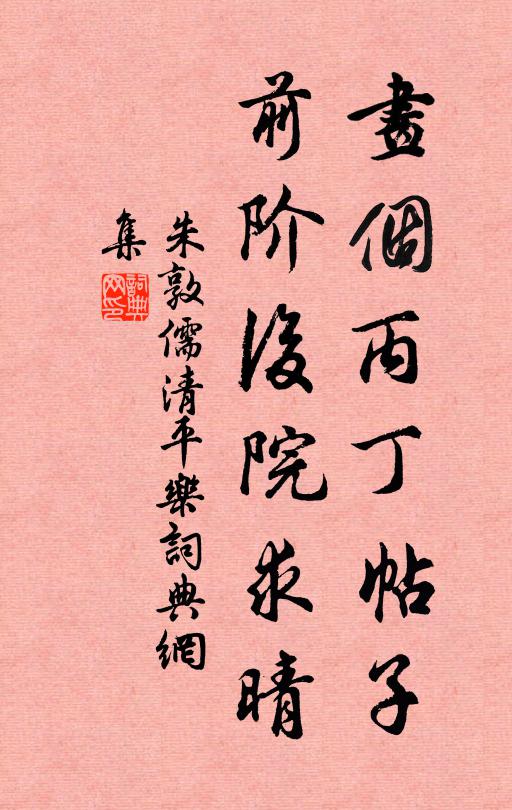 畫個丙丁帖子
前阶後院求晴
朱敦儒清平樂詞典網
集
詞典
网印